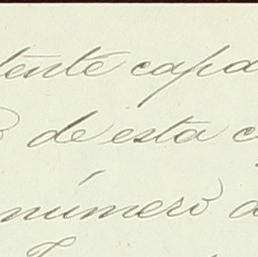 tente capa
de esta c
número d